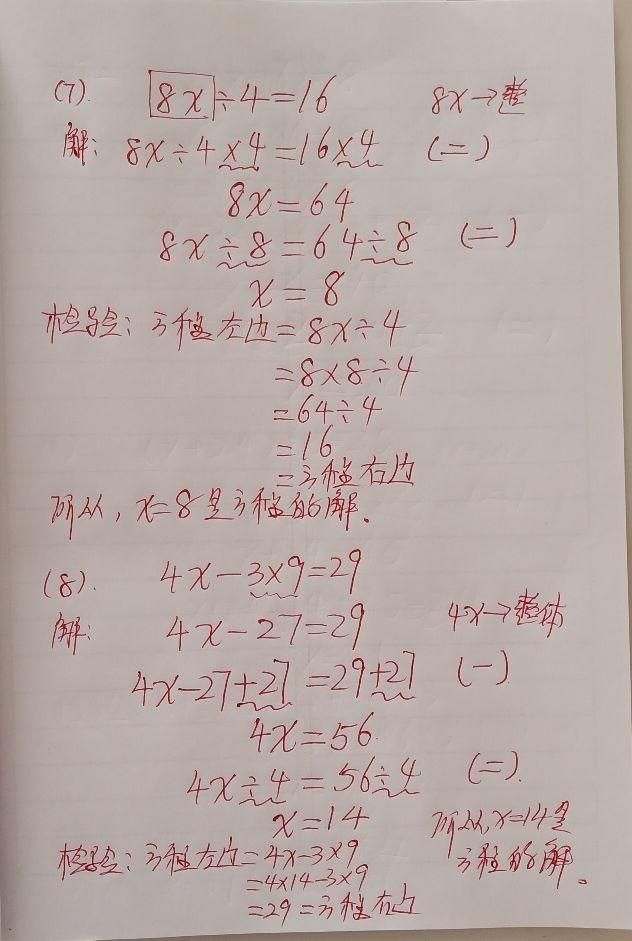 (7). 8x÷4=16 8x→整
解: 8x÷4×4=16×4 (二)
8x=64
8x÷8=64÷8 (二)
x=8
检验: 方程左边=8x÷4
=8×8÷4
=64÷4
=16
=方程右边
所以, x=8是方程的解。
(8). 4x-3×9=29
解: 4x-27=29 4x→整体
4x-27+27=29+27 (一)
4x=56
4x÷4=56÷4 (二).
x=14 所以, x=14是
检验: 方程左边=4x-3×9 方程的解。
=4×14-3×9
=29=方程右边